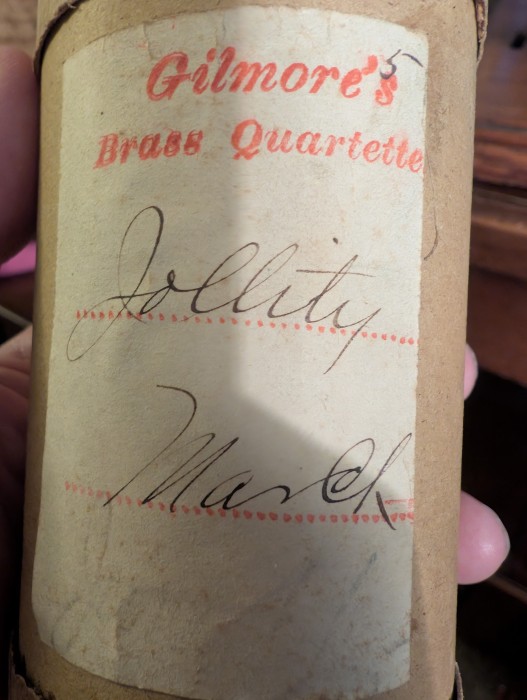 5
Gilmore's
Brass Quartette
Jollity
March